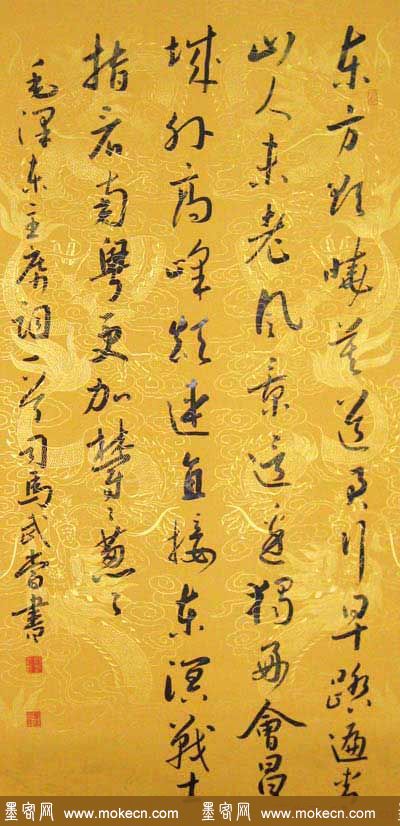 东方欲晓莫道君行早踏遍青
山人未老风景這边獨好會昌
城外高峰颠連直接东溟戰士
指看南粵更加鬱々葱々
毛澤东主席詞一首司馬武書
墨客网 www.mokecn.com 墨客网 www.mokecn.com